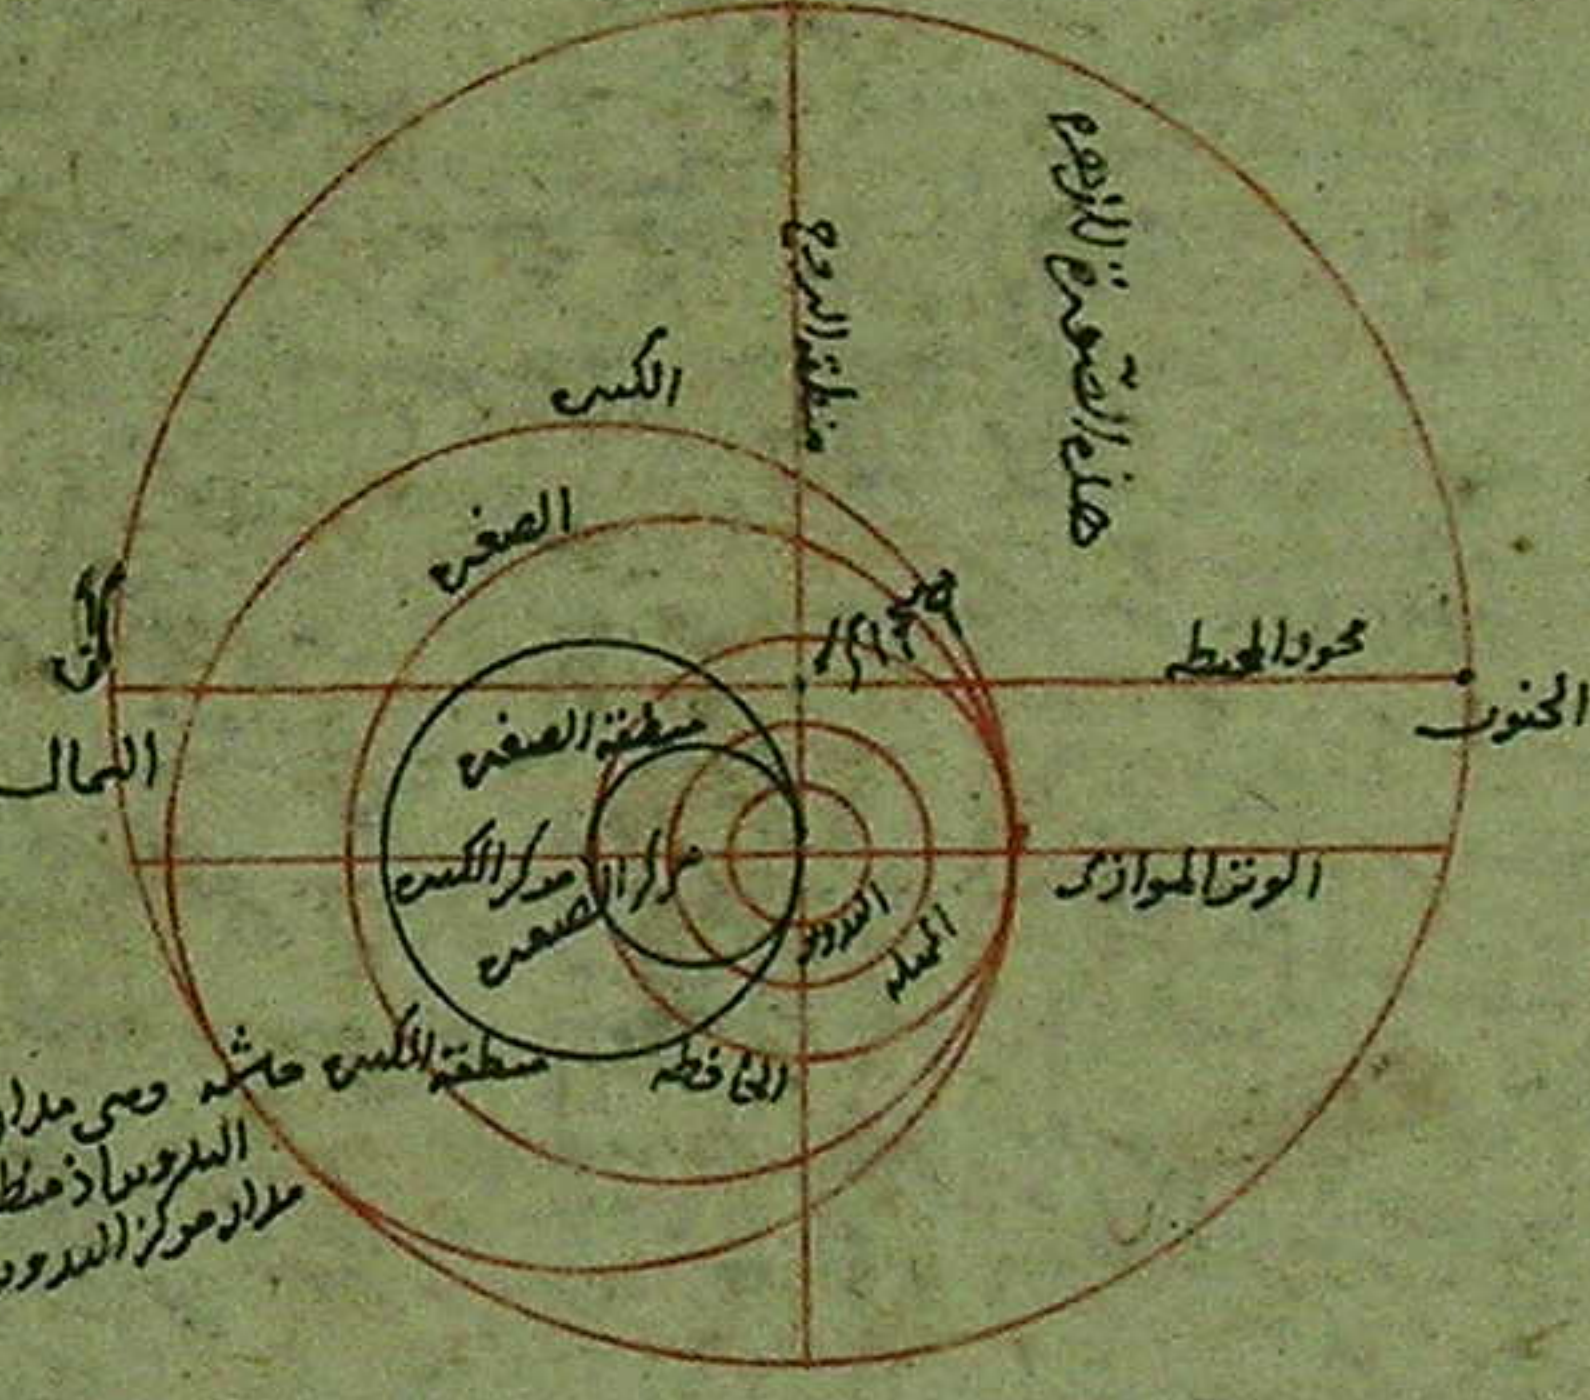 هذه الصورة للزهرة
منطقة البروج
الكبيرة
الصغيرة
محور المحيطة
الجنوب
الشمال
منطقة الصغيرة
مركز الكبيرة
مركز الصغيرة
الوتر الموازي
التدوير
المميلة
الحافظة
منطقة الكبيرة حاشية وهي مدار
التدوير اذ
مدار مركز التدوير